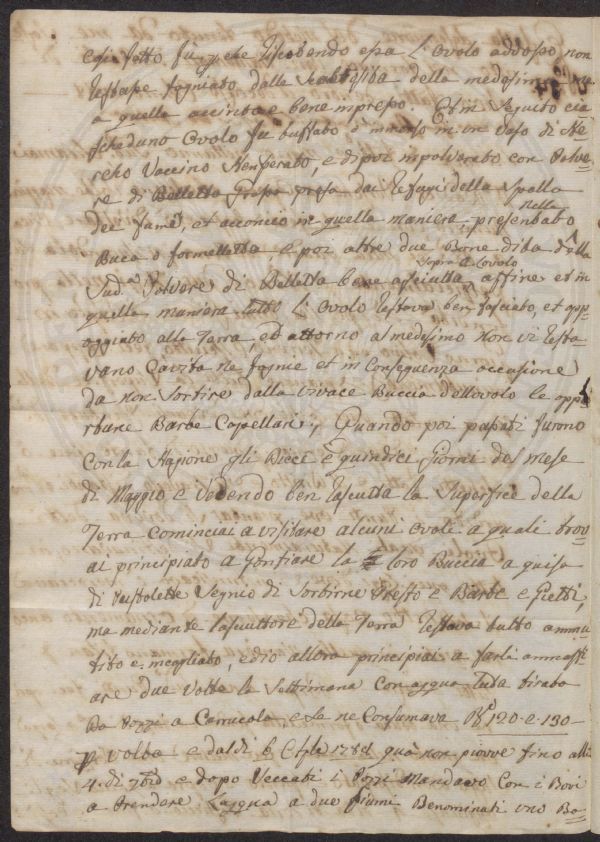 fetto fu, che essa L'Ovolo addoso non
restasse dalla della medesima
a quella e bene impreso. Et in Seguito cia
scheduno Ovolo fu buffato e immerso in un Vaso di
Vaccino Stemperato, e di poi impolverato con Polve=
re di Balletta presa dai della Spalla
dei fiumi, et acconcio in quella maniera, presentato nella
Buca o formelletta, e poi altre due Bone dita della
Sud.ª Polvere di Balletta bene asciutta, sopra a Lovolo affine et in
quella maniera tutto L'Ovolo restava ben fasciato, et app
oggiato alla Terra, ed attorno al medesimo non vi resta
vano Cavita ne et in Conseguenza occasione
da non Sortire dalla vivace Buccia dell'ovolo le opp
rtune Barbe Capellari, Quando poi passati furono
Con la Stagione gli Dieci e quindici Giorni del mese
di Maggio e Vedendo ben asciutta la Superfice della
Terra Cominciai a visitare alcuni Ovoli a quali trov
ai principiato a Gonfiare la loro Buccia a guisa
di Segnio di Sortirne Presto e Barbe e Getti,
ma mediante lasciuttore della Terra restava tutto ammu
tito e, ed io allora principiai a farli annaffi
are due Volte la Settimana Con acqua tutta tirata
Da Pozzi a Carrucola, e Se ne Consumava 120 e 130
p Volta e dal di 6 1782 qua non piovve fino alli
4. di 7bre e dopo Seccati i Pozzi Mandavo Con i Bovi
a Prendere Lacqua a due fiumi Denominati uno Bo=